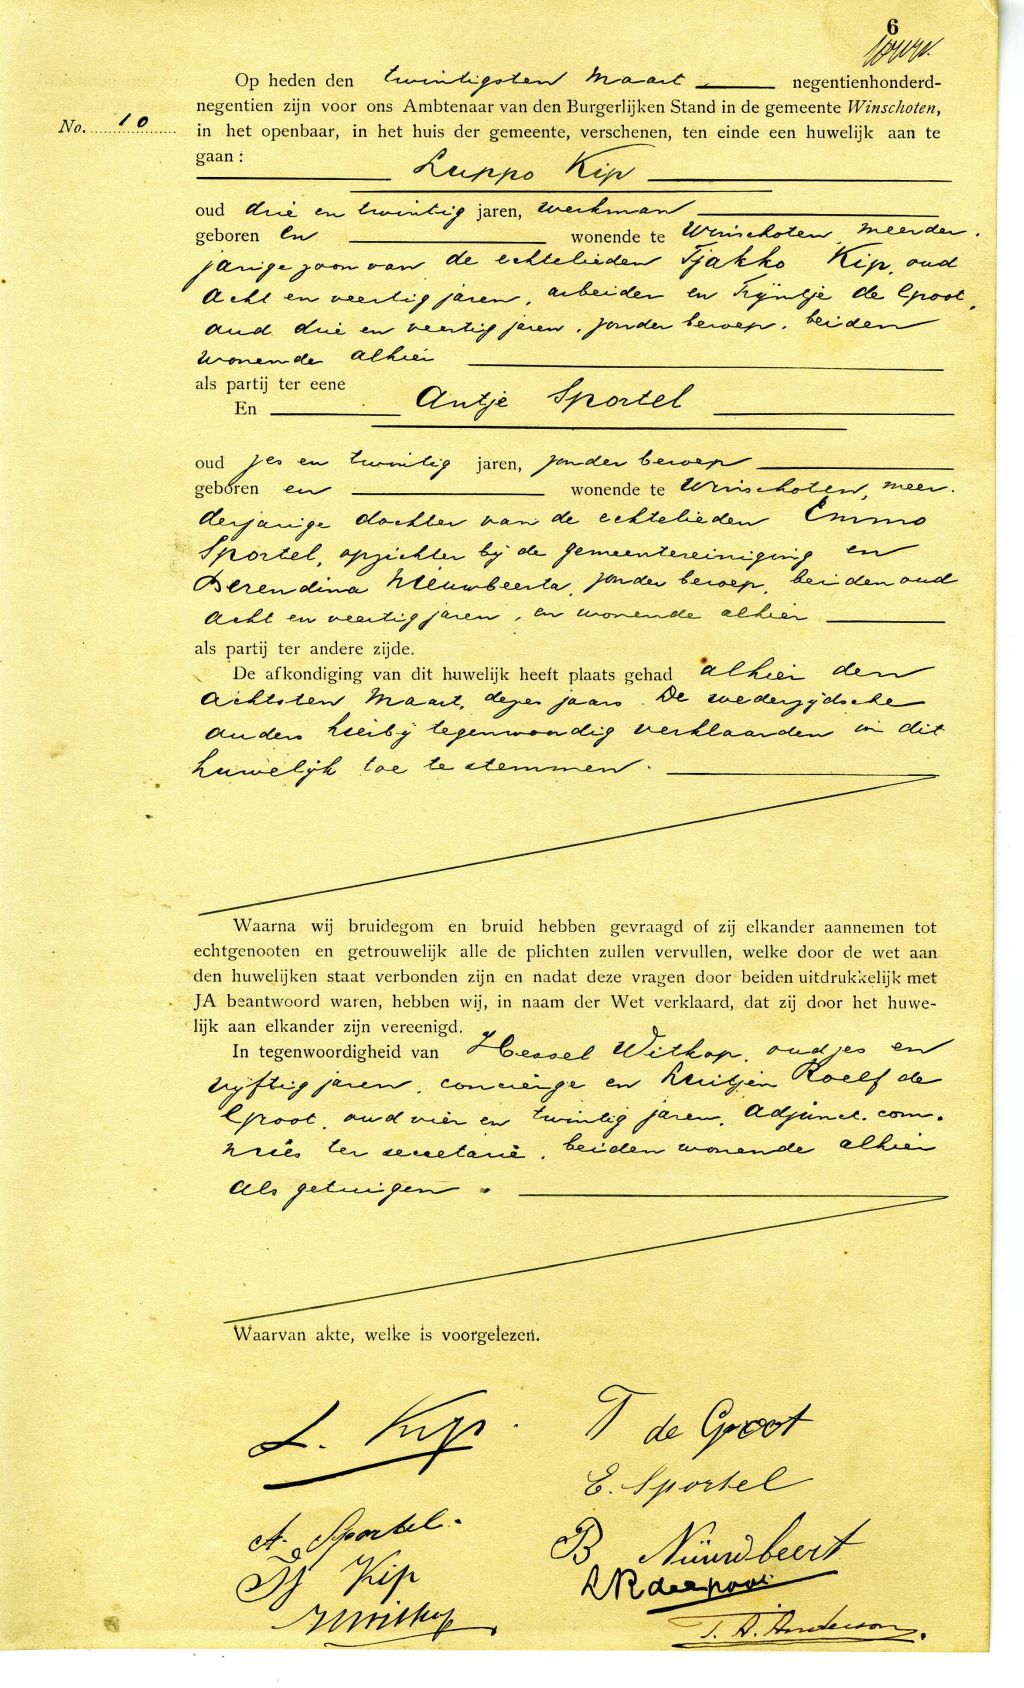 6
Op heden den twintigsten Maart negentienhonderd-
negentien zijn voor ons Ambtenaar van den Burgerlijken Stand in de gemeente Winschoten,
No. 10
in het openbaar, in het huis der gemeente, verschenen, ten einde een huwelijk aan te
gaan:
Luppo Kip
oud drie en twintig jaren, werkman
geboren en wonende te Winschoten, meerder-
jarige zoon van de echtelieden Tjakko Kip, oud
acht en veertig jaren, arbeider en Trijntje de Groot,
oud drie en veertig jaren, zonder beroep, beiden
wonende alhier
als partij ter eene
En Antje Sportel
oud zes en twintig jaren, zonder beroep
geboren en wonende te Winschoten, meer-
derjarige dochter van de echtelieden Emmo
Sportel, opzichter bij de gemeentereiniging en
Berendina Nieuwbeerta, zonder beroep, beiden oud
acht en veertig jaren, en wonende alhier
als partij ter andere zijde.
De afkondiging van dit huwelijk heeft plaats gehad alhier den
achtsten Maart, dezes jaars. De wederzijdsche
ouders hierbij tegenwoordig verklaarden in dit
huwelijk toe te stemmen.
Waarna wij bruidegom en bruid hebben gevraagd of zij elkander aannemen tot
echtgenooten en getrouwelijk alle de plichten zullen vervullen, welke door de wet aan
den huwelijken staat verbonden zijn en nadat deze vragen door beiden uitdrukkelijk met
JA beantwoord waren, hebben wij, in naam der Wet verklaard, dat zij door het huwe-
lijk aan elkander zijn vereenigd.
In tegenwoordigheid van Hessel Witkop, oud zes en
vijftig jaren, conciërge en Luitjen Roelf de
Groot, oud vier en twintig jaren, adjunct-com-
mies ter secretarie, beiden wonende alhier
als getuigen.
Waarvan akte, welke is voorgelezen.
L. Kip.
T de Groot
E. Sportel
A. Sportel.
B Nieuwbeert
Tj Kip
LR de Groot
HWitkop
T. A. Anderson.